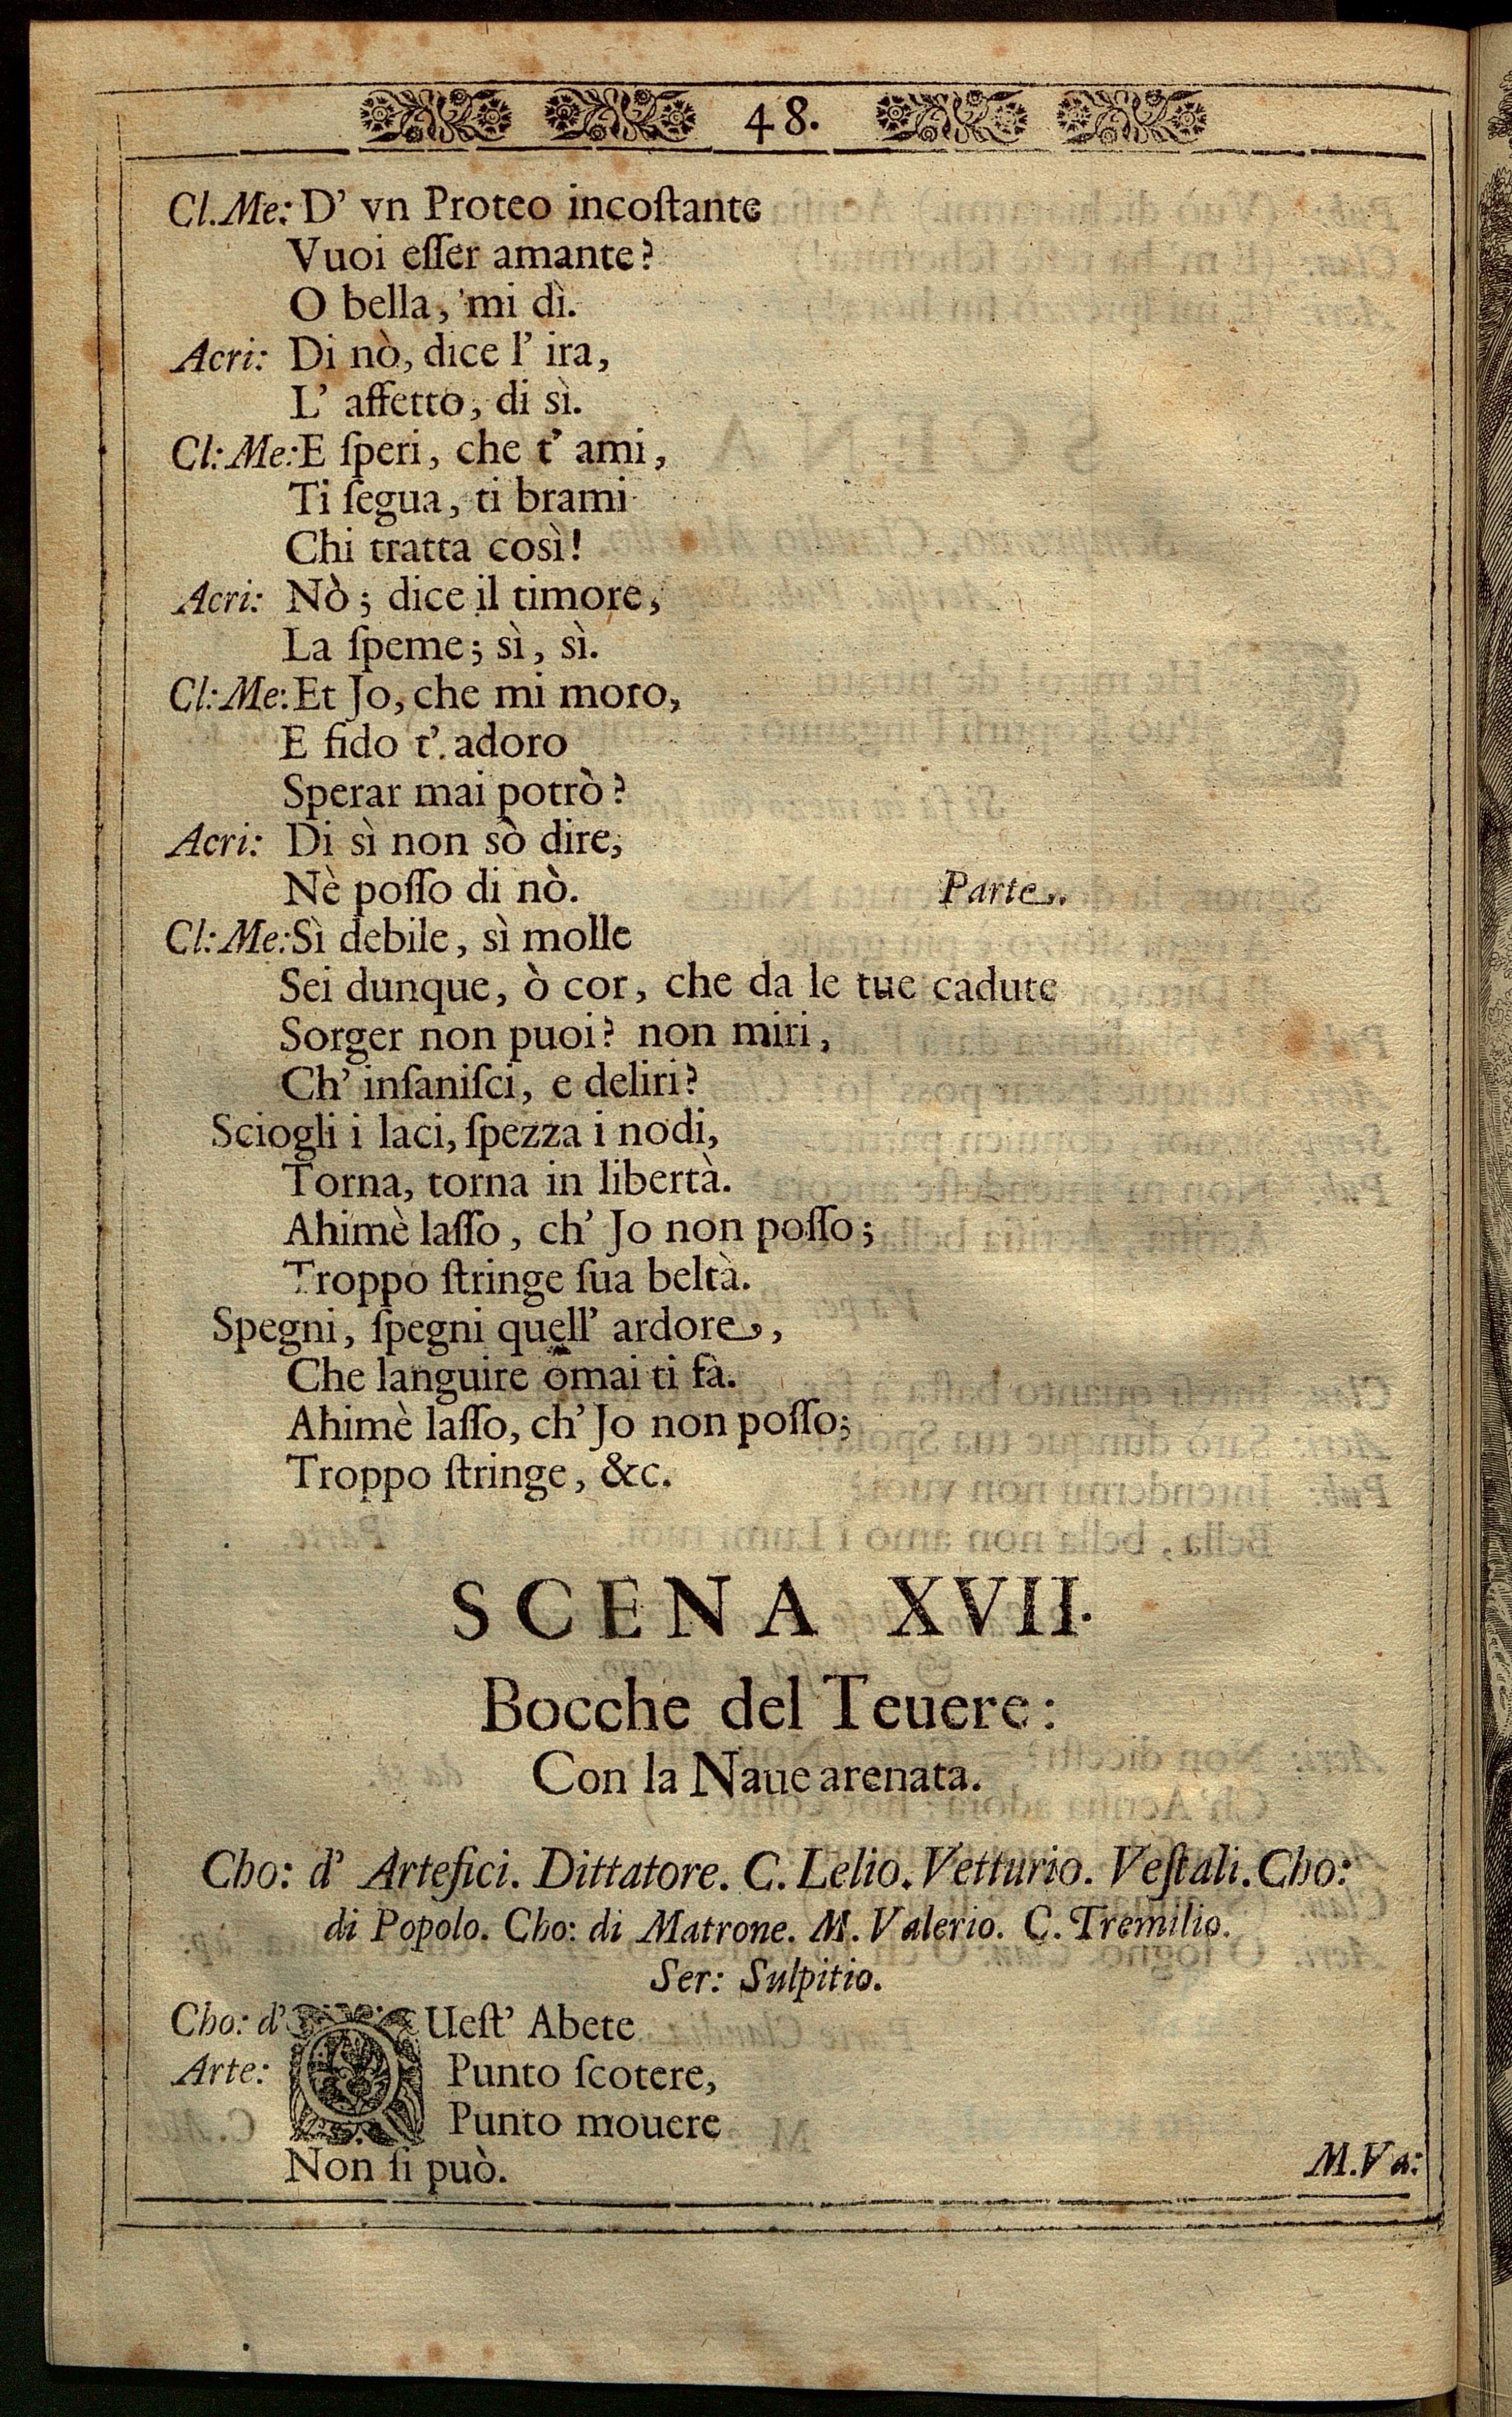 48.
Cl.Me: D' vn Proteo incoſtante
Vuoi eſſer amante?
O bella, mi dì.
Acri: Di nò, dice l' ira,
L' affetto, di sì.
Cl: Me: E ſperi, che t' ami,
Ti ſegua, ti brami
Chi tratta così!
Acri: Nò; dice il timore,
La ſpeme; sì, sì.
Cl: Me: Et Jo, che mi moro,
E fido t'. adoro
Sperar mai potrò?
Acri: Di sì non sò dire,
Nè poſſo di nò. Parte.
Cl: Me: Sì debile, sì molle
Sei dunque, ò cor, che da le tue cadute
Sorger non puoi? non miri,
Ch' inſaniſci, e deliri?
Sciogli i laci, ſpezza i nodi,
Torna, torna in libertà.
Ahimè laſſo, ch' Jo non poſſo;
Troppo ſtringe ſua beltà.
Spegni, ſpegni quell' ardore,
Che languire omai ti fà.
Ahimè laſſo, ch' Jo non poſſo;
Troppo ſtringe, &c.
SCENA XVII.
Bocche del Teuere:
Con la Naue arenata.
Cho: d' Artefici. Dittatore. C. Lelio. Vetturio. Veſtali. Cho:
di Popolo. Cho: di Matrone. M. Valerio. C. Tremilio.
Ser: Sulpitio.
Cho: d' QUeſt' Abete
Arte: Punto ſcotere,
Punto mouere
Non ſi può.
M.Va: